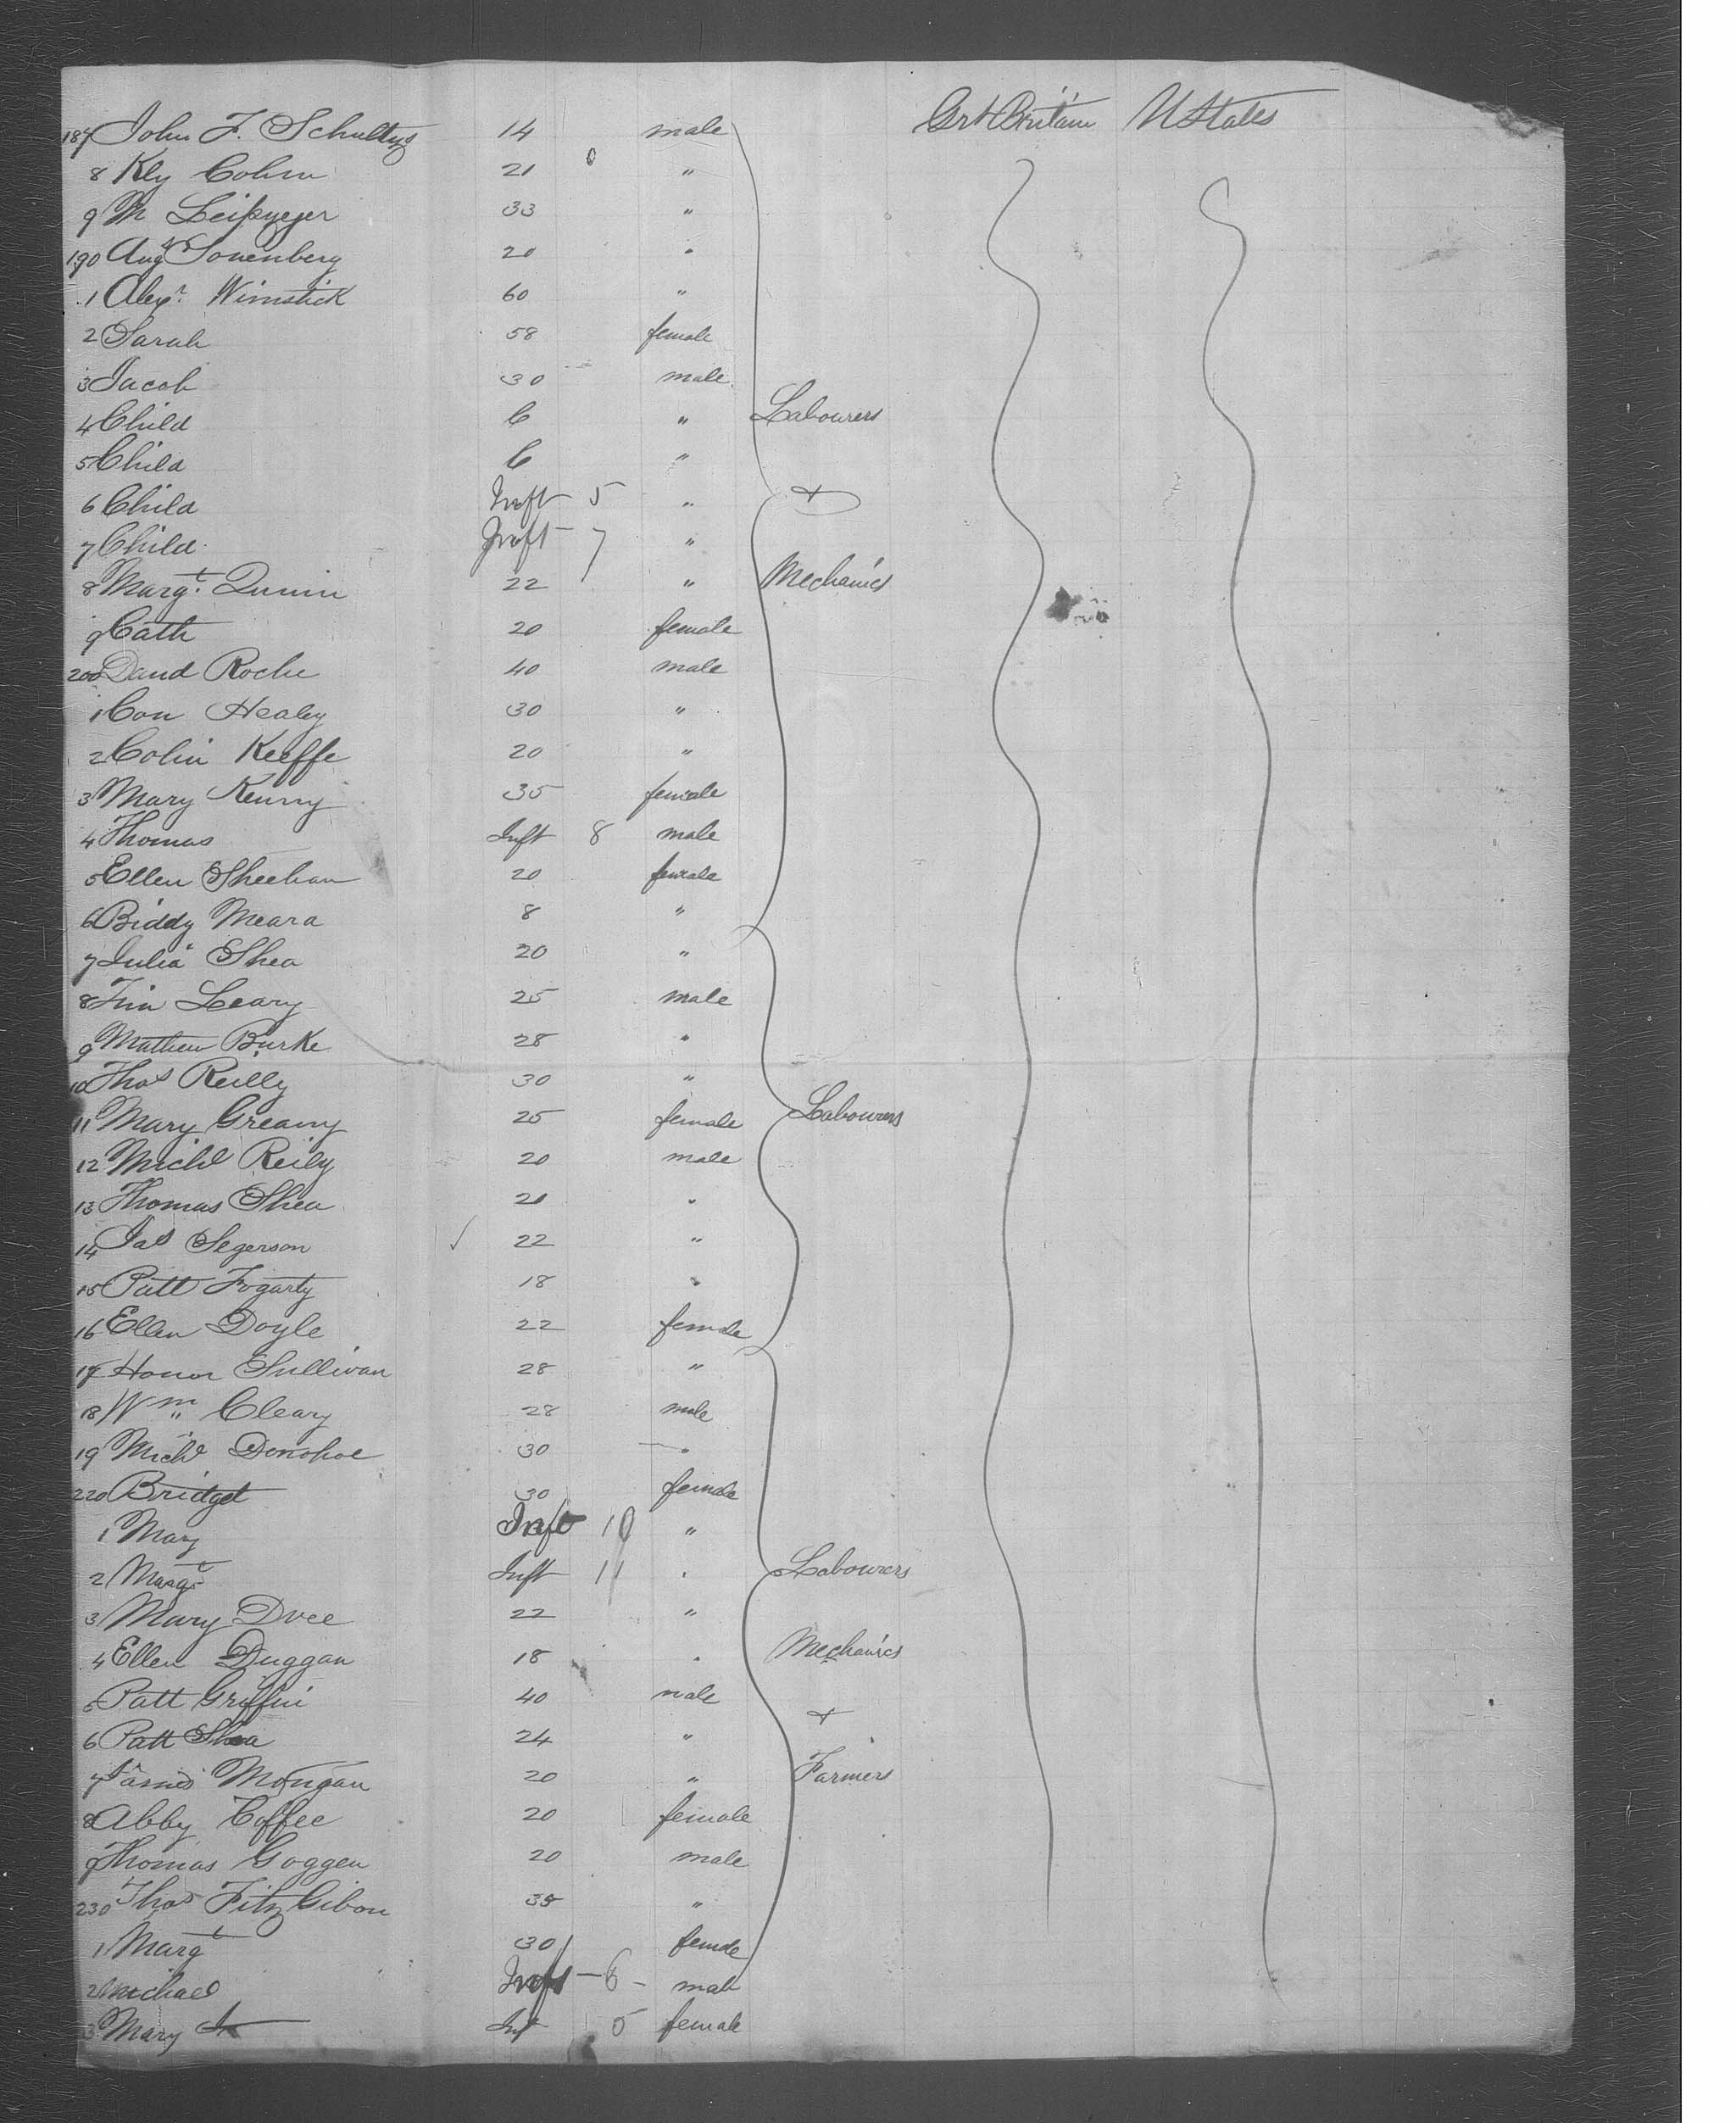 Grt Britain UStates
187 John F. Schultys 14 male
8 Kly Cohm 21 "
9 M Leipzeger 33 "
190 Augs Sonenberg 20 "
1 Alexr. Wimstick 60 "
2 Sarah 58 female
3 Jacob 30 male
4 Child 6 " Labourers
5 Child 6 "
6 Child Inft 5 " &
7 Child Inft 7 "
8 Margt. Quinn 22 " Mechanics
9 Cath 20 female
200 David Roche 40 male
1 Con Healey 30 "
2 Colin Keeffe 20 "
3 Mary Kenny 35 female
4 Thomas Inft 8 male
5 Ellen Sheehan 20 female
6 Biddy Meara 8 "
7 Julia Shea 20 "
8 Tim Leary 25 male
9 Mathew Burke 28 "
10 Thos Reilly 30 "
11 Mary Greany 25 female Labourers
12 Michl Reily 20 male
13 Thomas Shea 21 "
14 Jas Segerson 22 "
15 Patt Fogarty 18 "
16 Ellen Doyle 22 female
17 Honor Sullivan 28 "
18 Wm Cleary 28 male
19 Michl Donohoe 30 "
220 Bridget 30 female
1 Mary Inft 10 "
2 Margt Inft 11 " Labourers
3 Mary Dree 22 "
4 Ellen Duggan 18 " Mechanics
5 Patt Griffin 40 male
6 Patt Shea 24 " &
7 James Mongan 20 " Farmers
8 Abby Coffee 20 female
9 Thomas Goggen 20 male
230 Thos FitzGibon 35 "
1 Margt 30 female
2 Michael Inft 6 male
3 Mary Inf 5 female